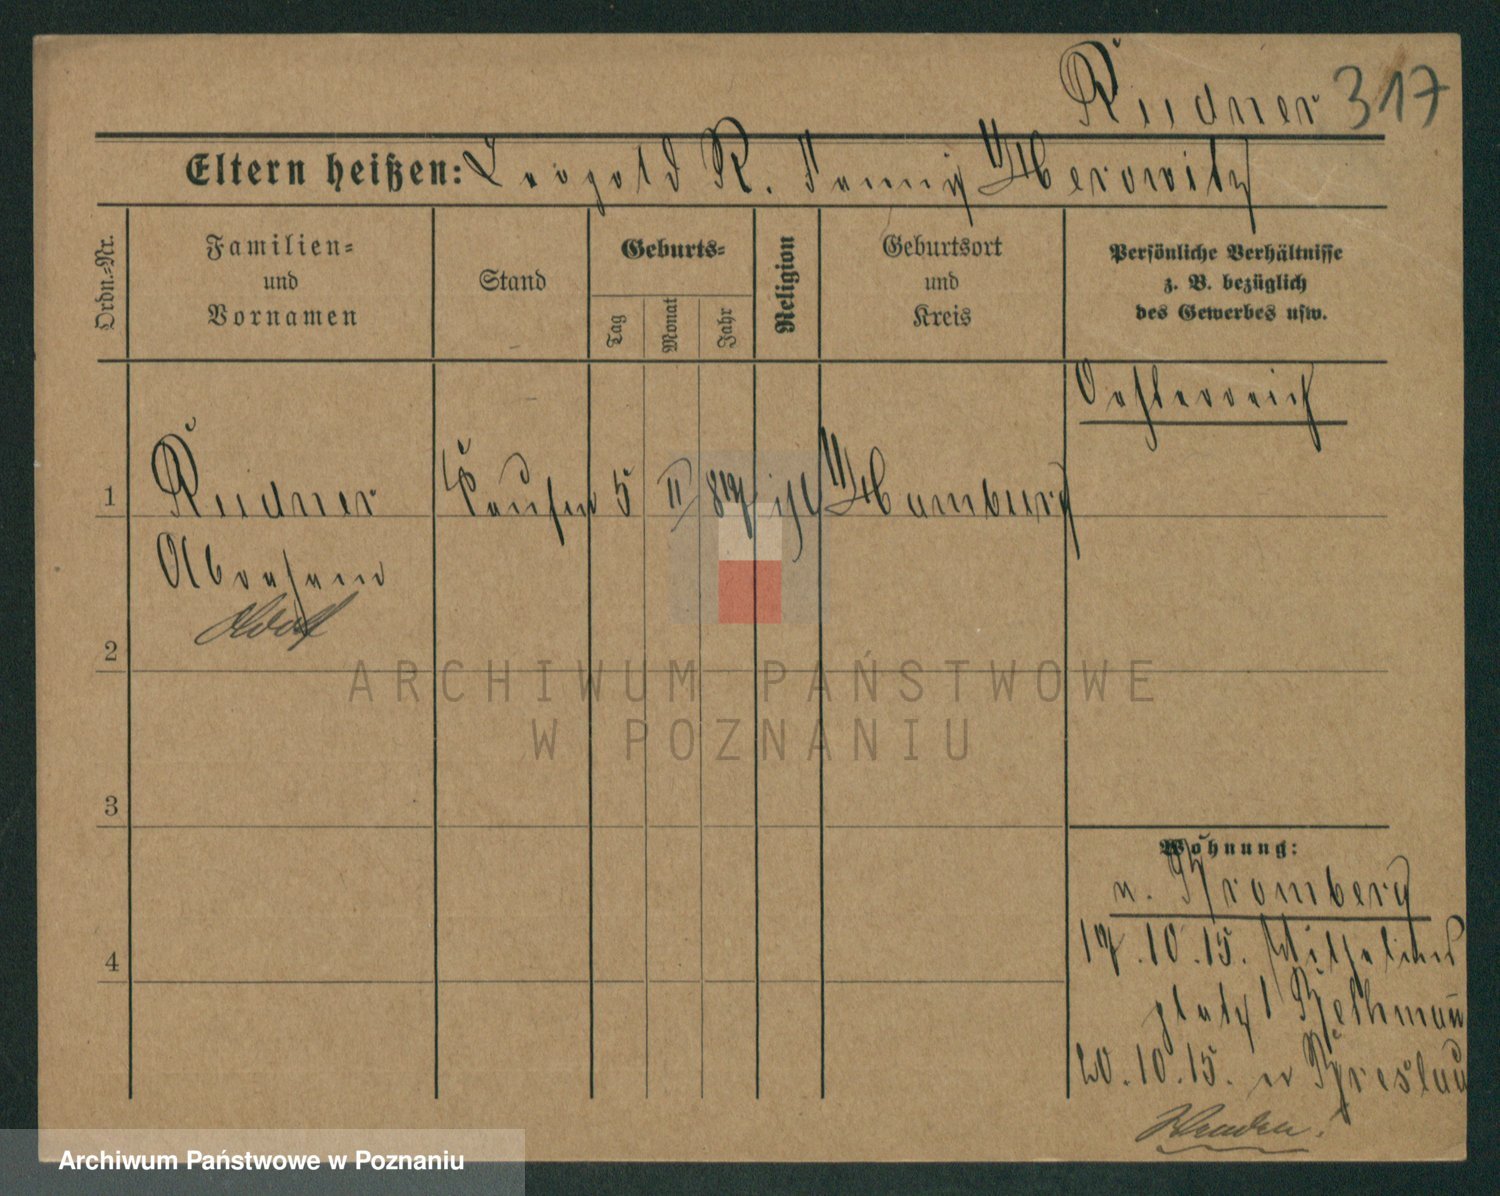 Rudner 317
Eltern heißen: Leopold R. Fanny Herowitz
Ordn.=Nr.
Familien=
und
Vornamen
Stand
Geburts=
Tag
Monat
Jahr
Religion
Geburtsort
und
Kreis
Persönliche Verhältnisse
z. B. bezüglich
des Gewerbes usw.
Oesterreich
1 Rudner 5 II 87 isr Hamburg
Abraham
Adolf
2
3
4
Wohnung:
v. Bromberg
17.10.15. Wilhelms
platz 1 Bethmann
20.10.15. n Breslau
ARCHIWUM PAŃSTWOWE
W POZNANIU
Archiwum Państwowe w Poznaniu